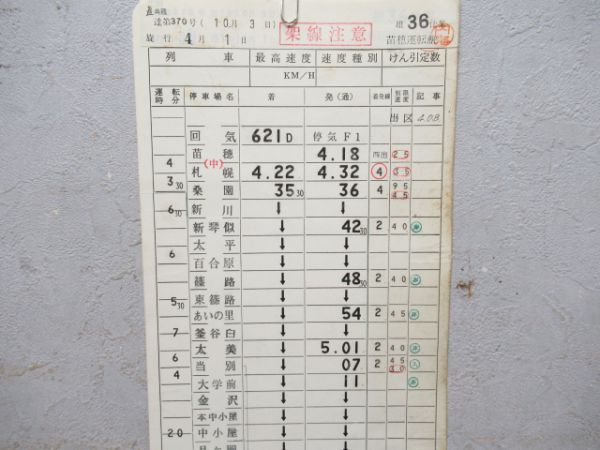 達第370号(10月3日)
施行 4月1日
架線注意
36
苗穂運転所
列車 最高速度 速度種別 けん引定数
KM/H
運転時分 停車場名 着 発(通) 着発線 制限速度 記事
出区 4.08
回気 621D 停気F1
苗穂 4.18 25
4 (中)
札幌 4.22 4.32 4 35
3 30
桑園 35 30 36 4 95 45
新川 ↓ ↓
6 30
新琴似 ↓ 42 30 2 40
太平 ↓ ↓
6
百合原 ↓ ↓
篠路 ↓ 48 30 2 40
東篠路 ↓ ↓
5 30
あいの里 ↓ 54 2 45
7 釜谷臼 ↓ ↓
太美 ↓ 5.01 2 40
6
当別 ↓ 07 2 45 30
4
大学前 ↓ 11
金沢 ↓ ↓
本中小屋 ↓ ↓
20 中小屋 ↓ ↓